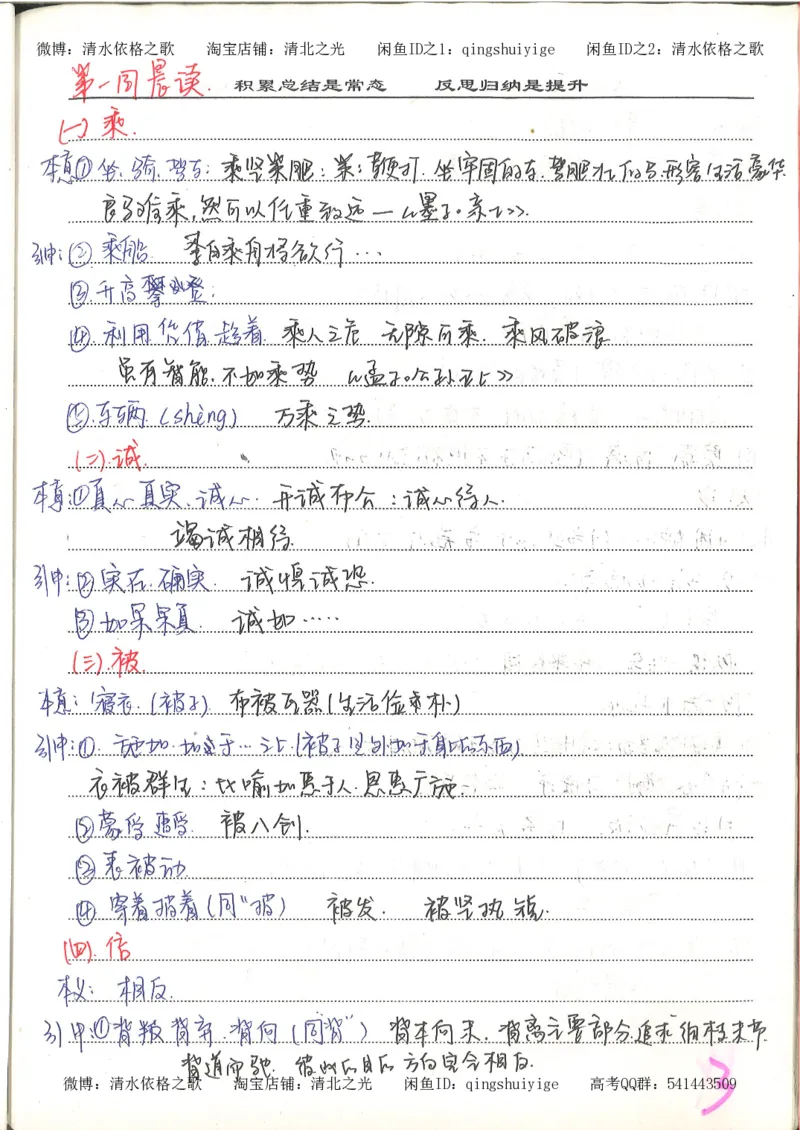 微博：清水依格之歌 淘宝店铺：清北之光 闲鱼ID之1：qingshuiyige 闲鱼ID之2：清水依格之歌
第一周晨读. 积累总结是常态 反思归纳是提升
(一) 乘.
本意①坐.骑.驾车：乘坚策肥：策：鞭打.坐牢固的车.驾肥壮的马.形容生活豪华.
良马难乘,然可以任重致远 —《墨子。亲士》.
引申：②乘船 李白乘舟将欲行…
③升高攀登：
④.利用 凭借 趁着. 乘人之危 无隙可乘. 乘风破浪
虽有智能.不如乘势 《孟子。公孙丑上》
⑤.车辆 (shèng) 万乘之势.
(二).诚.
本意:①真心真实.诚心. 开诚布公：诚心待人.
竭诚相待.
引申：②实在.确实. 诚惶诚恐.
③如果果真. 诚如……
(三).被.
本意：寝衣.(被子) 布被瓦器(生活俭朴)
引申:①.施加.加于…之上
衣被群生：比喻加惠于人.恩惠广施.
②蒙受 遭受 被八创.
③表被动.
④ 穿着披着(同“披) 被发. 被坚执锐.
(四).倍
本义： 相反.
引申:①背叛 背弃.背向(同“背”) 背本向末.背离主要部分.追求细枝末节
背道而驰. 彼此的目的方向完全相反.
微博：清水依格之歌 淘宝店铺：清北之光 闲鱼ID：qingshuiyige 高考QQ群：541443509
3